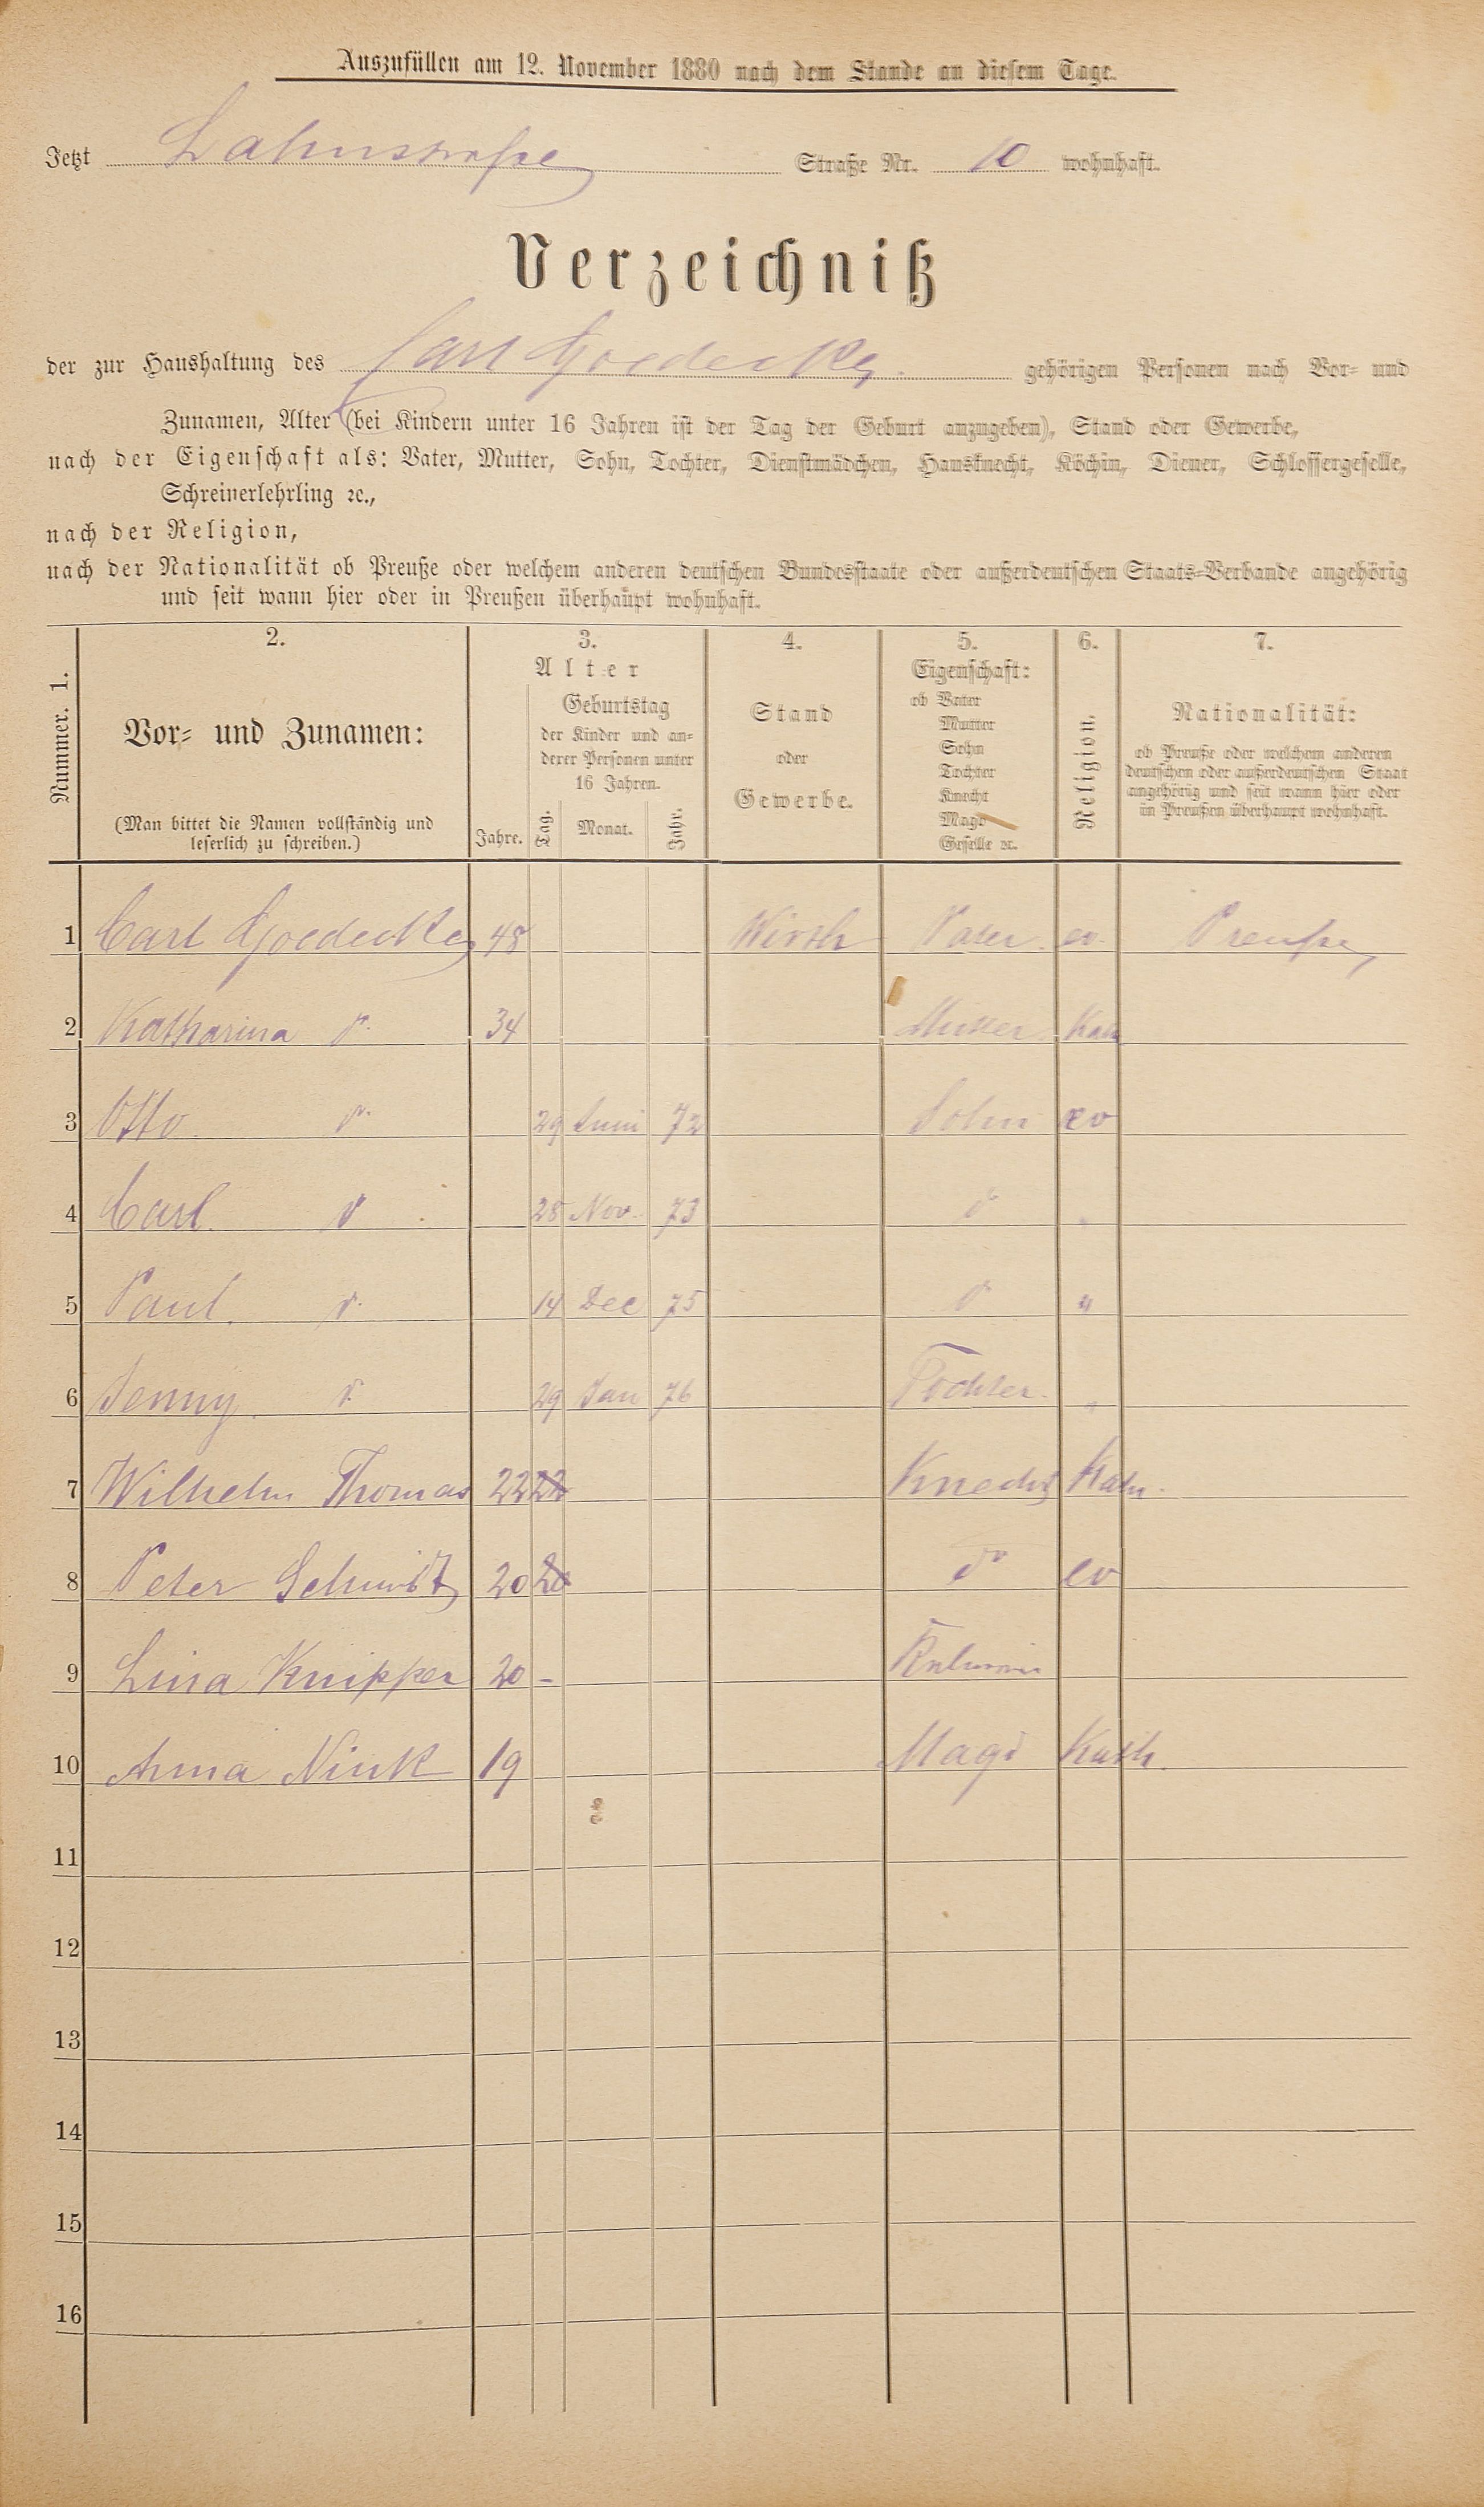 Auszufüllen am 12. November 1880 nach dem Stande an diesem Tage.
Jetzt Lahnstraße Straße Nr. 10 wohnhaft.
Verzeichniß
der zur Haushaltung des Carl Goedecke gehörigen Personen nach Vor- und
Zunamen, Alter (bei Kindern unter 16 Jahren ist der Tag der Geburt anzugeben), Stand oder Gewerbe,
nach der Eigenschaft als: Vater, Mutter, Sohn, Tochter, Dienstmädchen, Hausknecht, Köchin, Diener, Schlossergeselle,
Schreinerlehrling ꝛc.,
nach der Religion,
nach der Nationalität ob Preuße oder welchem anderen deutschen Bundesstaate oder außerdeutschen Staats-Verbande angehörig
und seit wann hier oder in Preußen überhaupt wohnhaft.
Nummer. 1.
2.
Vor- und Zunamen:
(Man bittet die Namen vollständig und
leserlich zu schreiben.)
3.
Alter
Jahre.
Geburtstag
der Kinder und an-
derer Personen unter
16 Jahren.
Tag. Monat. Jahr.
4.
Stand
oder
Gewerbe.
5.
Eigenschaft:
ob Vater
Mutter
Sohn
Tochter
Knecht
Magd
Geselle ꝛc.
6.
Religion.
7.
Nationalität:
ob Preuße oder welchem anderen
deutschen oder außerdeutschen Staat
angehörig und seit wann hier oder
in Preußen überhaupt wohnhaft.
1 Carl Goedecke 48 Wirth Vater ev. Preuße
2 Katharina 34 Mutter Kath
3 Otto 29 Juni 72 Sohn ev
4 Carl 28 Nov. 73
5 Paul 14 Dec 75 "
6 Jenny 29 Jan 76 Tochter "
7 Wilhelm Thomas 22 22 Knecht Kath.
8 Peter Schmidt 20 20 ev
9 Lina Knipper 20 -
10 Anna Nink 19 Magd Kath.
11
12
13
14
15
16